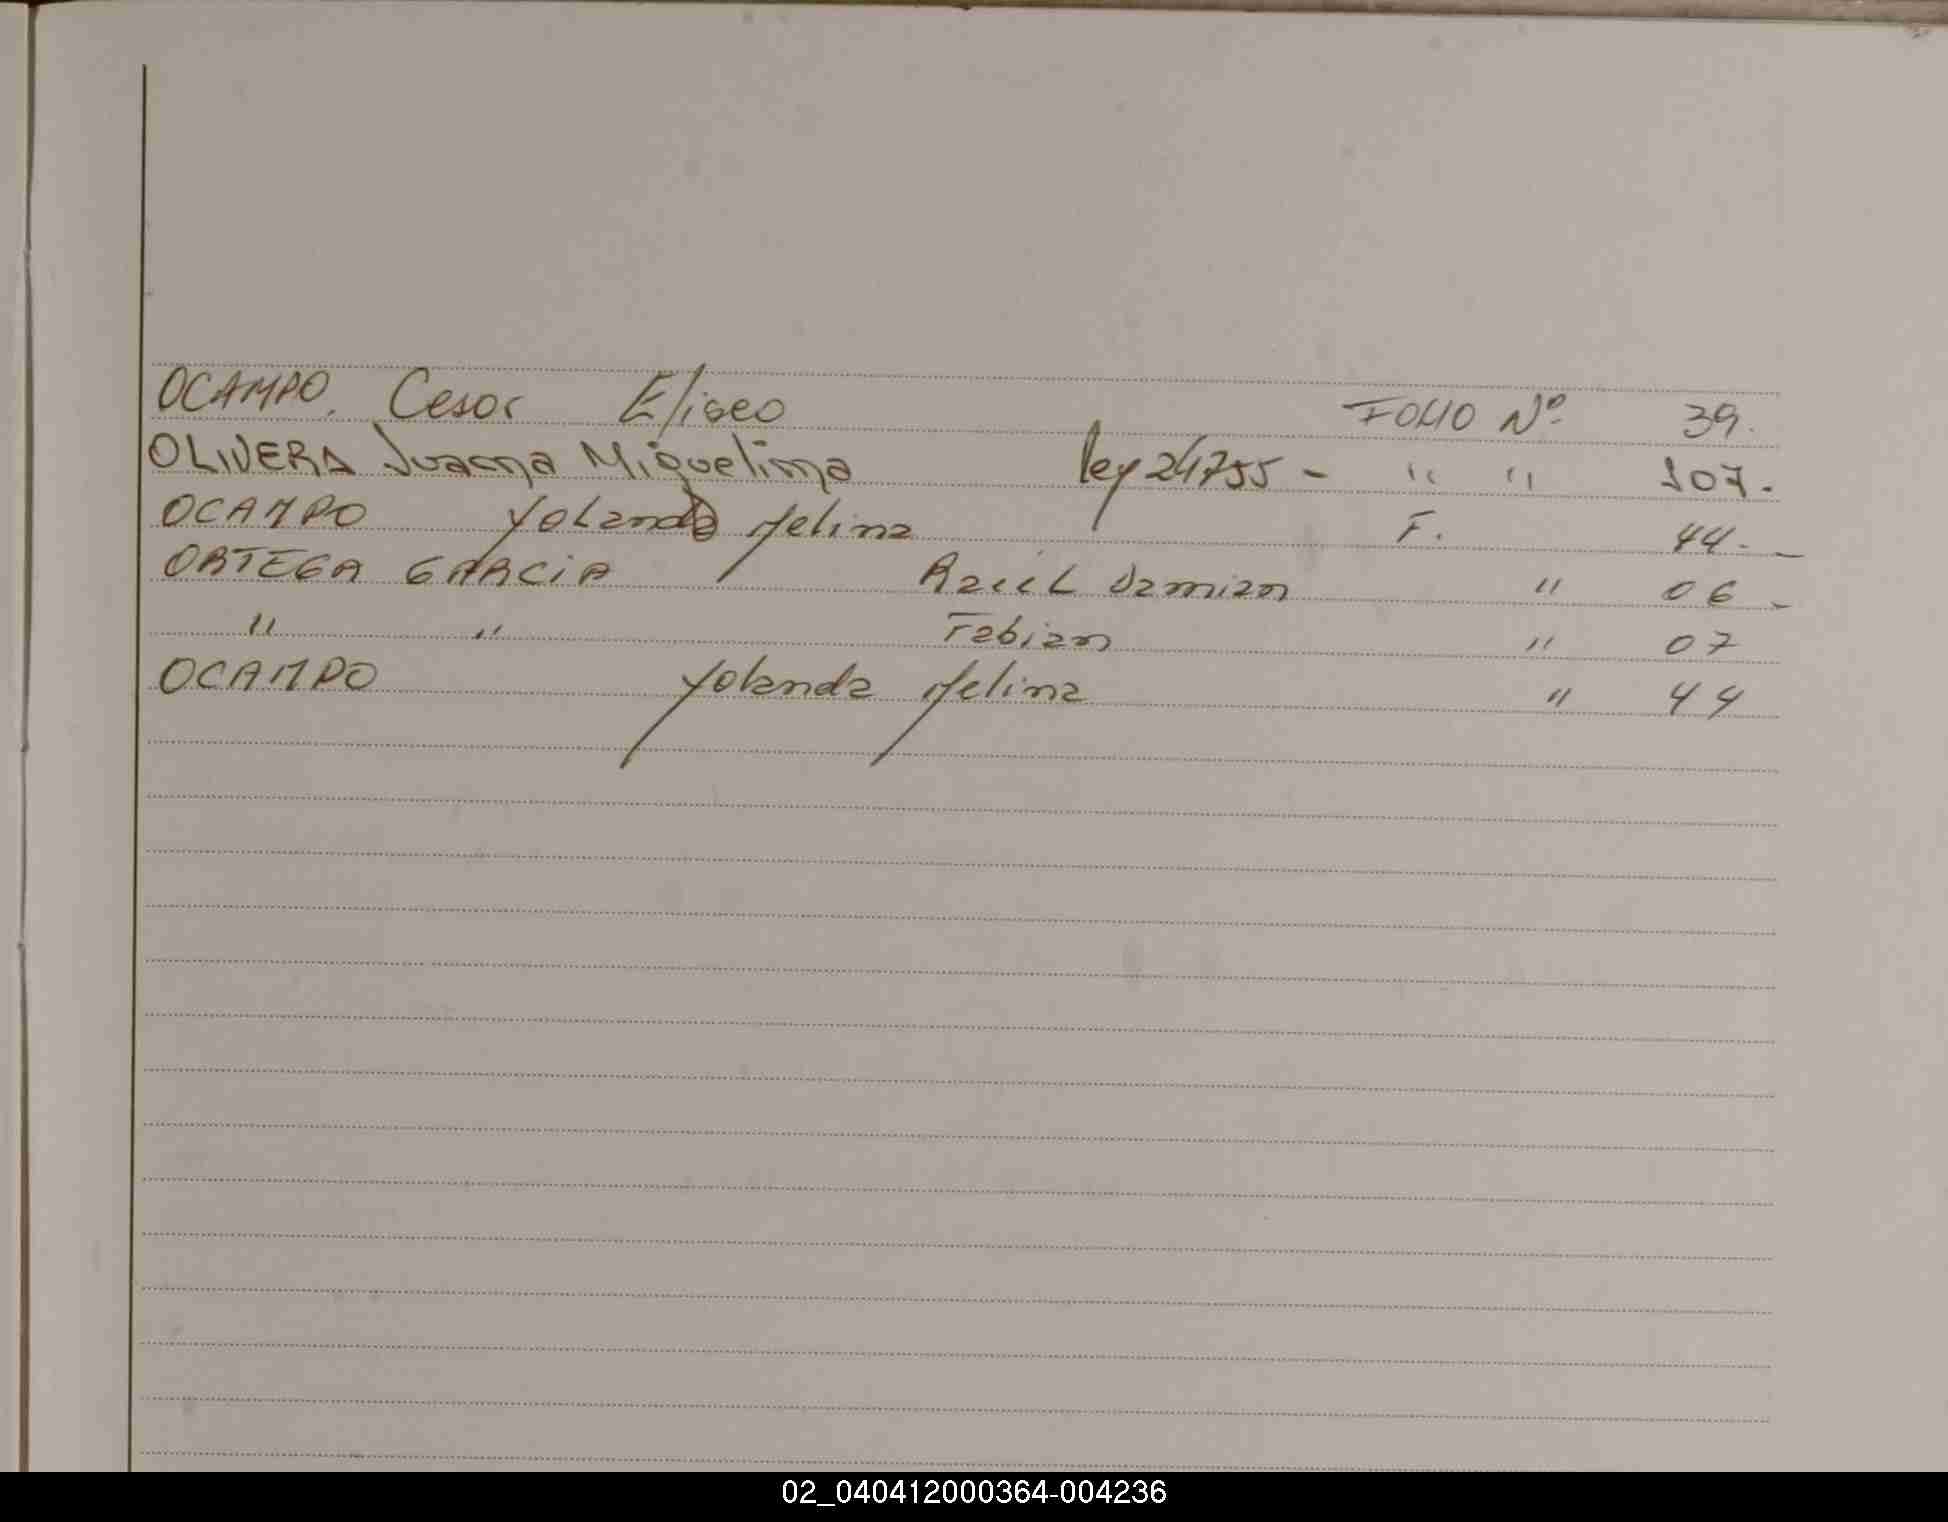 OCAMPO. Cesar Eliseo FOLIO Nº 39.
OLIVERA Juana Miguelina ley 24755 - " " 107.
OCAMPO Yolanda Melina F. 44. -
ORTEGA GARCIA Raúl Damian " 06 -
" " Fabian " 07
OCAMPO Yolanda Melina " 44
02_040412000364-004236